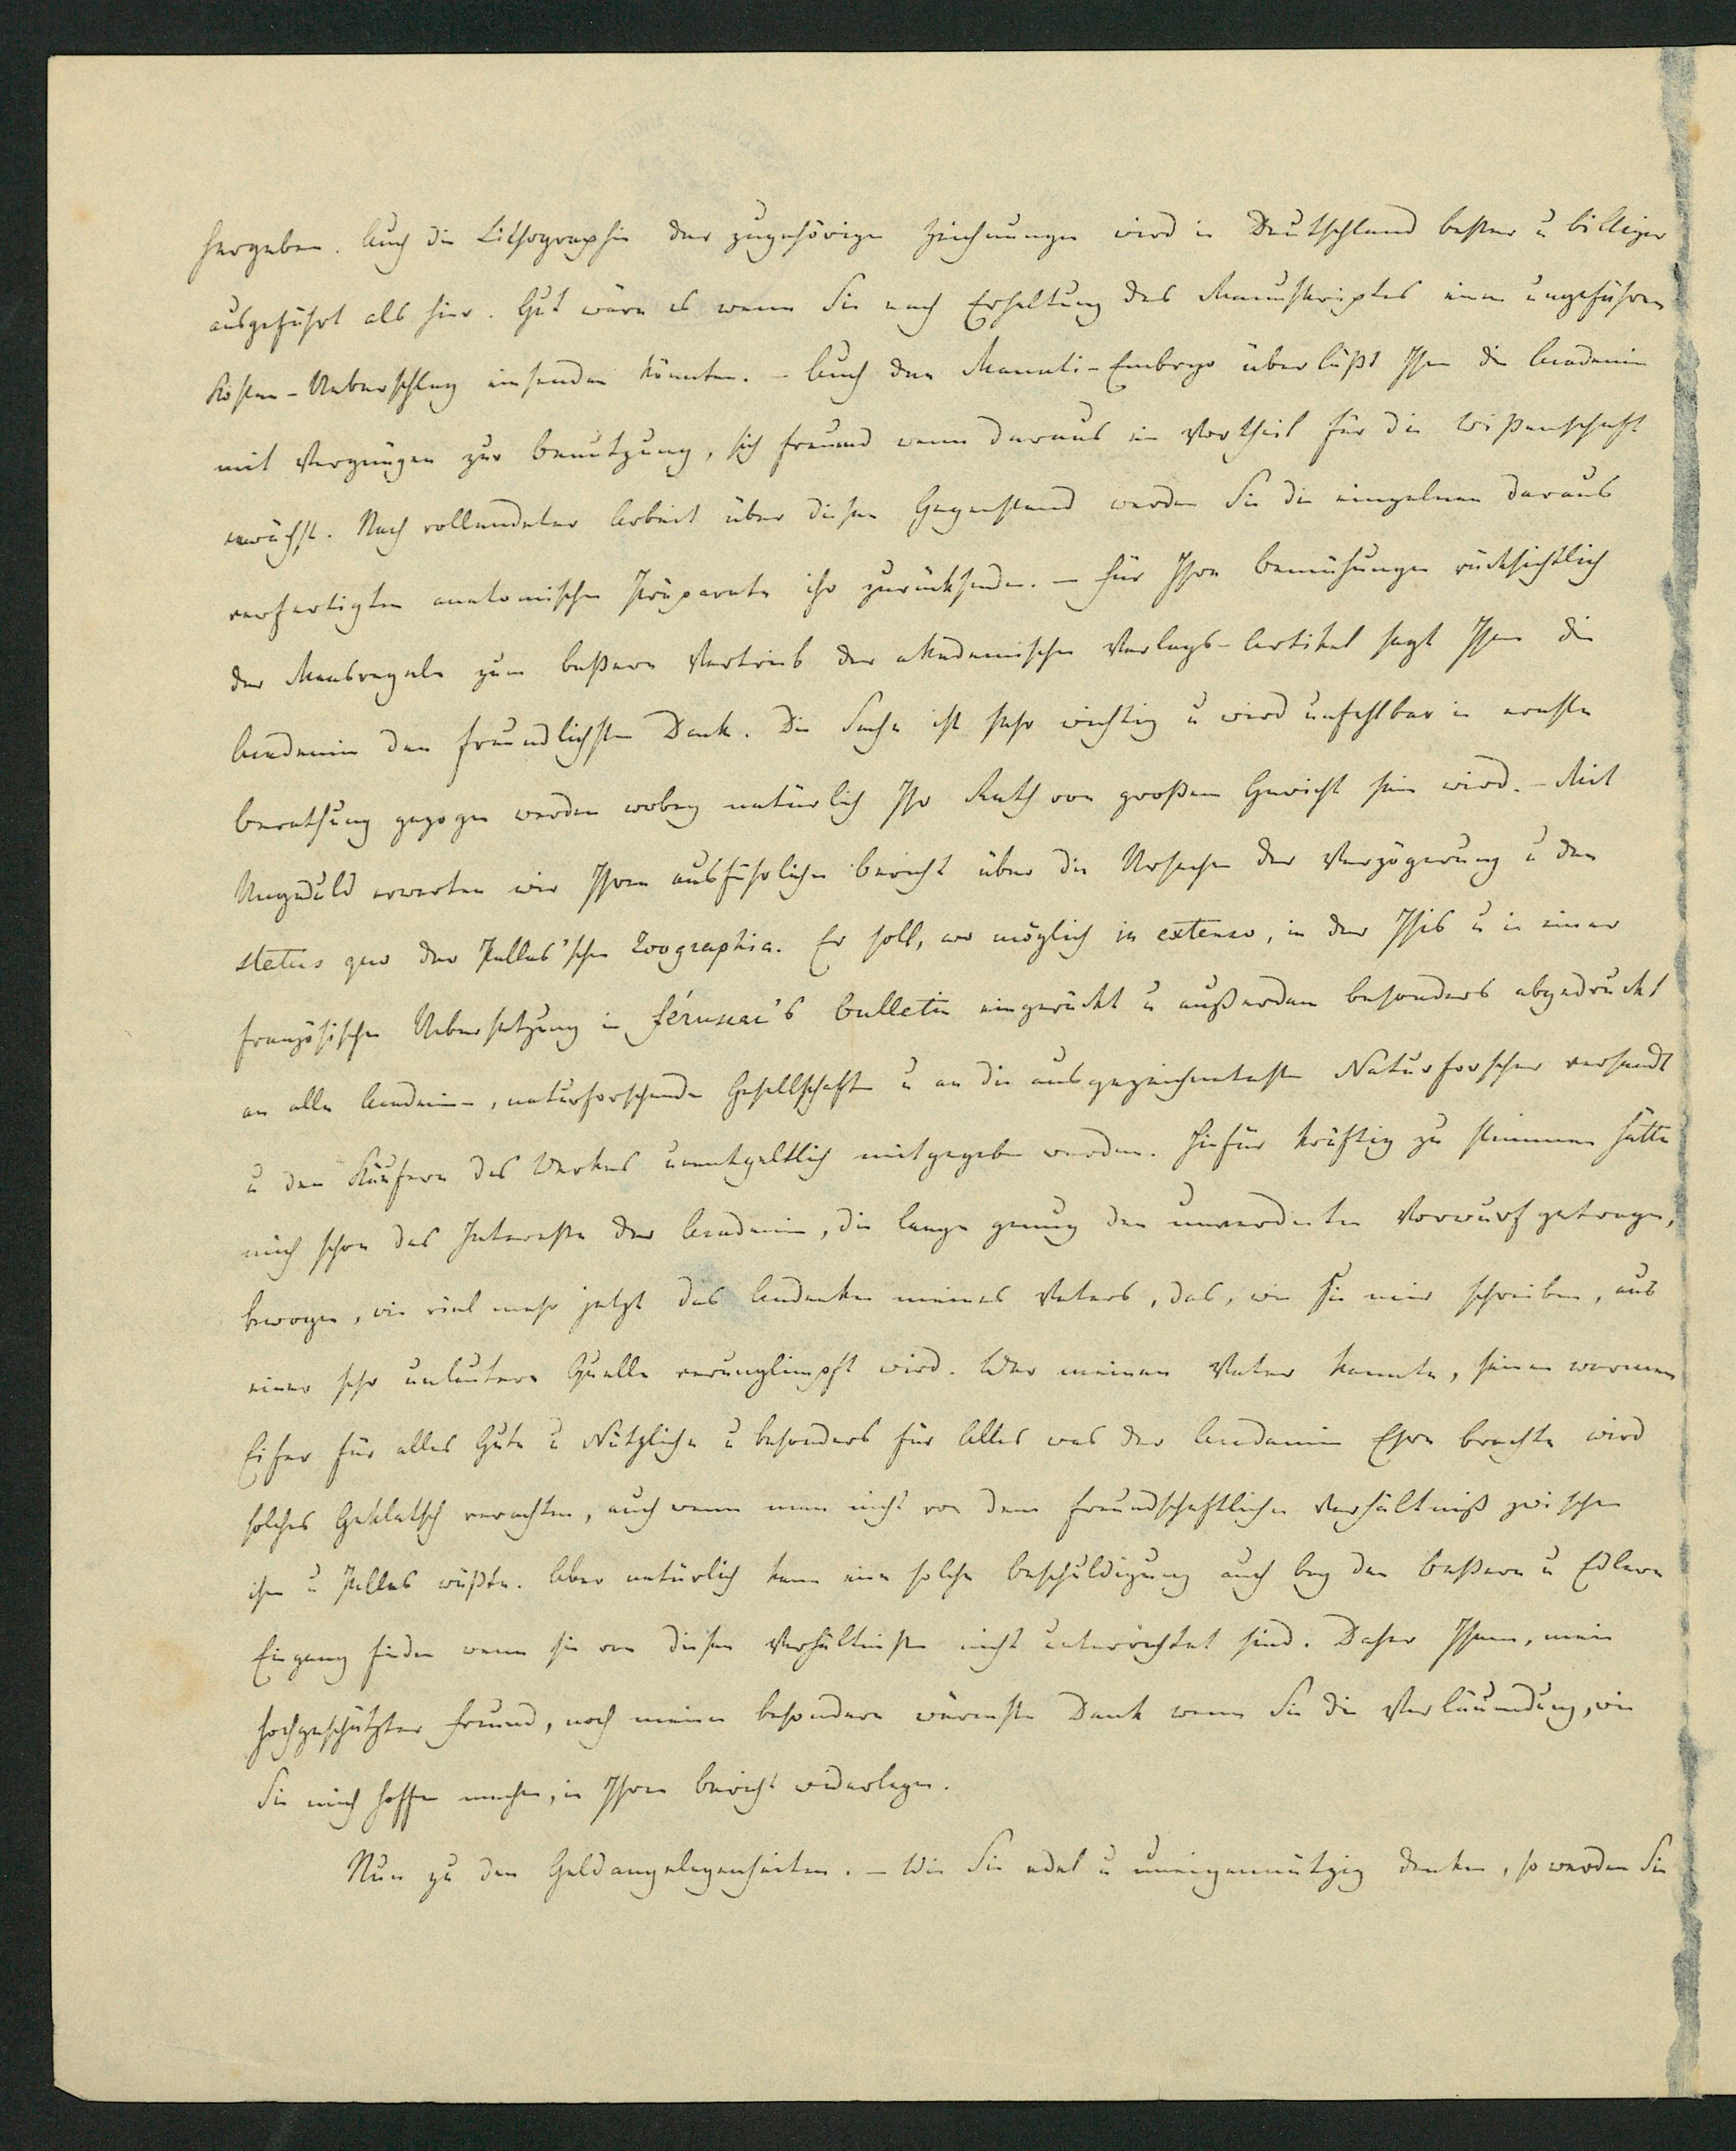 hergeben. Auch die Lithographie der zugehörigen Zeichnungen wird in Deutschland besser u billiger
ausgeführt als hier. Gut wäre es wenn Sie nach Erhaltung des Manuskriptes einen ungefähren
Kosten-Ueberschlag einsenden könnten. – Auch den Manati-Embryo überläßt Ihnen die Academie
mit Vergnügen zur Benutzung, sich freuend wenn daraus ein Vortheil für die Wißenschaft
erwächst. Nach vollendeter Arbeit über diesen Gegenstand werden Sie die einzelnen daraus
verfertigten anatomischen Präparate ihr zurücksenden. – Für Ihre Bemühungen rücksichtlich
der Maasregeln zum beßern Vertrieb der akademischen Verlags-Artikel sagt Ihnen die
Academie den freundlichsten Dank. Die Sache ist sehr wichtig u wird unfehlbar in ernste
Berathung gezogen werden wobey natürlich Ihr Rath von großem Gewicht sein wird. – Mit
Ungeduld erwarten wir Ihren ausführlichen Bericht über die Ursachen der Verzögerung u den
status quo der Pallas'schen Zoographia. Er soll, wo möglich in extenso, in der Isis u in einer
französischen Uebersetzung in Férussac's Bulletin eingerückt u außerdem besonders abgedruckt
an alle Academien, naturforschende Gesellschaften u an die ausgezeichnetesten Naturforscher versandt
u den Käufern des Werkes unentgeltlich mitgegeben werden. Hiefür kräftig zu stimmen hätte
mich schon das Interesse der Academie, die lange genug den unverdienten Vorwurf getragen,
bewogen, wie viel mehr jetzt das Andenken meines Vaters, das, wie Sie mir schreiben, aus
einer sehr unlautern Quelle verunglimpft wird. Wer meinen Vater kannte, seinen warmen
Eifer für alles Gute u Nützliche u besonders für Alles was der Academie Ehre brachte wird
solches Geklatsch verachten, auch wenn man nicht von dem freundschaftlichen Verhältniß zwischen
ihm u Pallas wüßte. Aber natürlich kann eine solche Beschuldigung auch bey den Beßern u Edlern
Eingang finden wenn sie von diesen Verhältnißen nicht unterrichtet sind. Daher Ihnen, mein
hochgeschätzter Freund, noch meinen besondern wärmsten Dank wenn Sie die Verläumdung, wie
Sie mich hoffen machen, in Ihrem Bericht widerlegen.
Nun zu den Geldangelegenheiten. – Wie Sie edel u uneigennützig denken, so werden Sie